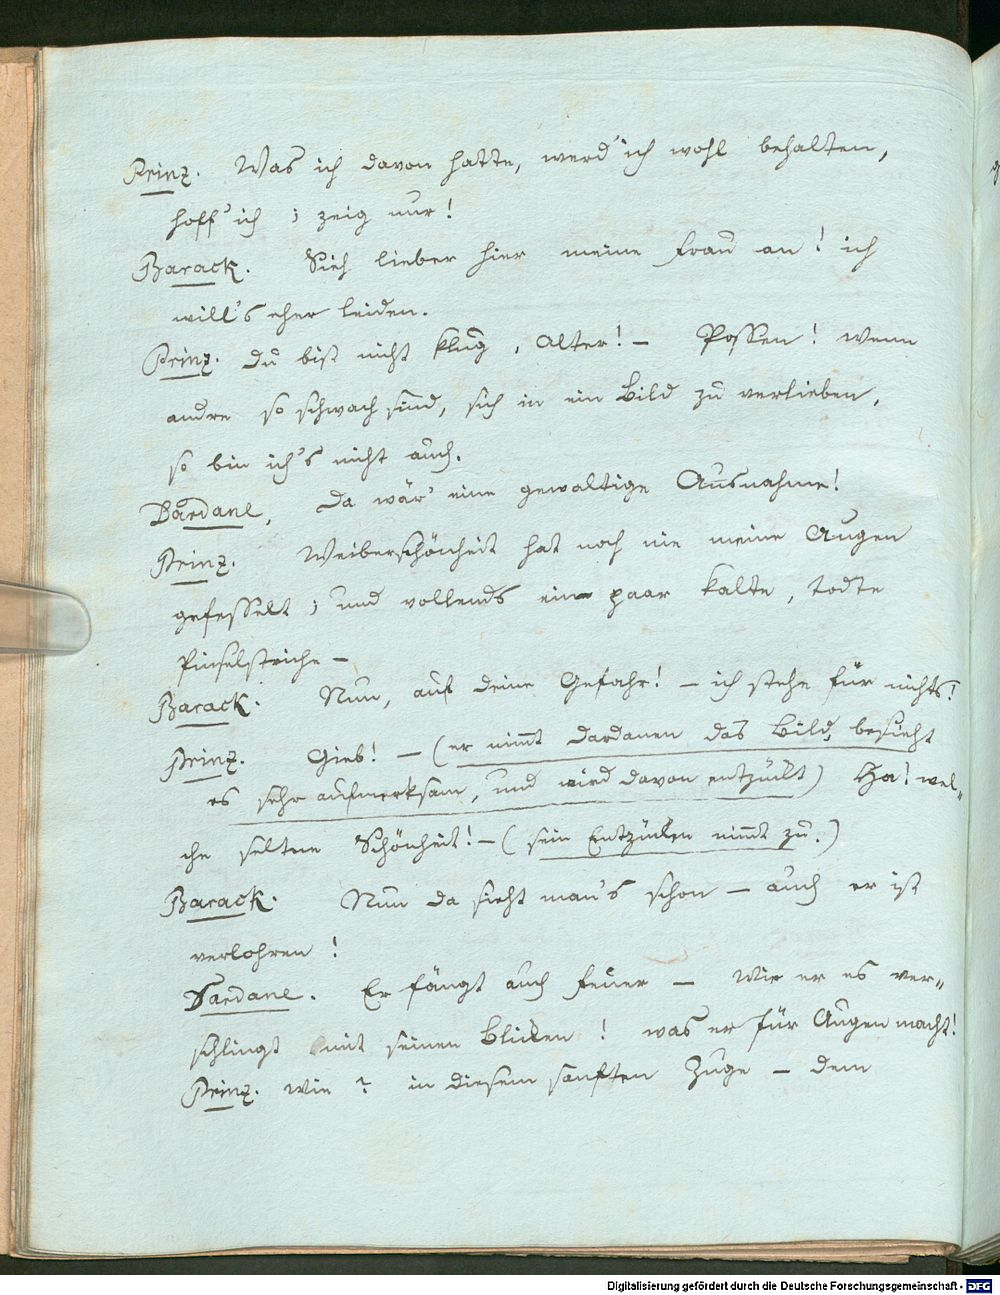 Prinz. Was ich davon hatte, werd' ich wohl behalten,
hoff' ich ; zeig nur!
Barack. Sieh lieber hier meine Frau an! ich
will's eher leiden.
Prinz. Du bist nicht klug, Alter! – Possen! wenn
andre so schwach sind, sich in ein Bild zu verlieben,
so bin ich's nicht auch.
Dardane, Da wär' eine gewaltige Ausnahme!
Prinz. Weiberschönheit hat noch nie meine Augen
gefesselt ; und vollends ein paar kalte, todte
Pinselstriche –
Barack. Nun, auf deine Gefahr! – ich stehe für nichts!
Prinz. Gieb! – (er nimmt Dardanen das Bild, besieht
es sehr aufmerksam, und wird davon entzückt) Ha! wel-
che seltne Schönheit! – (sein Entzücken nimmt zu.)
Barack. Nun da sieht man's schon – auch er ist
verlohren !
Dardane. Er fängt auch Feuer – Wie er es ver-
schlingt mit seinen Blicken ! was er für Augen macht!
Prinz. wie ? in diesem sanften Zuge – dem
Digitalisierung gefördert durch die Deutsche Forschungsgemeinschaft - DFG